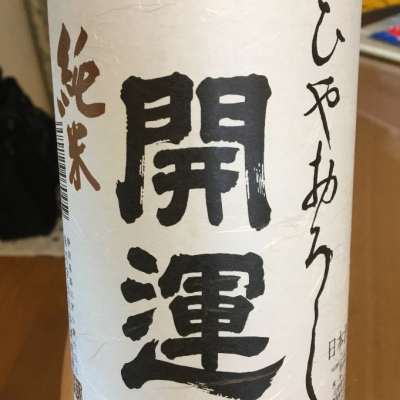 ひやおろし
開運
純米
日本